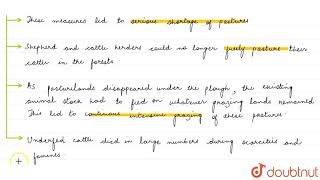 These measures led to serious shortage of pastures
Shepherd and cattle herders could no longer freely pasture their
cattle in the forests
As pasturelands disappeared under the plough, the existing
animal stock had to feed on whatever grazing lands remained
This led to continuous intensive grazing of these pastures
Underfed cattle died in large numbers during scarcities and
famines
doubtnut